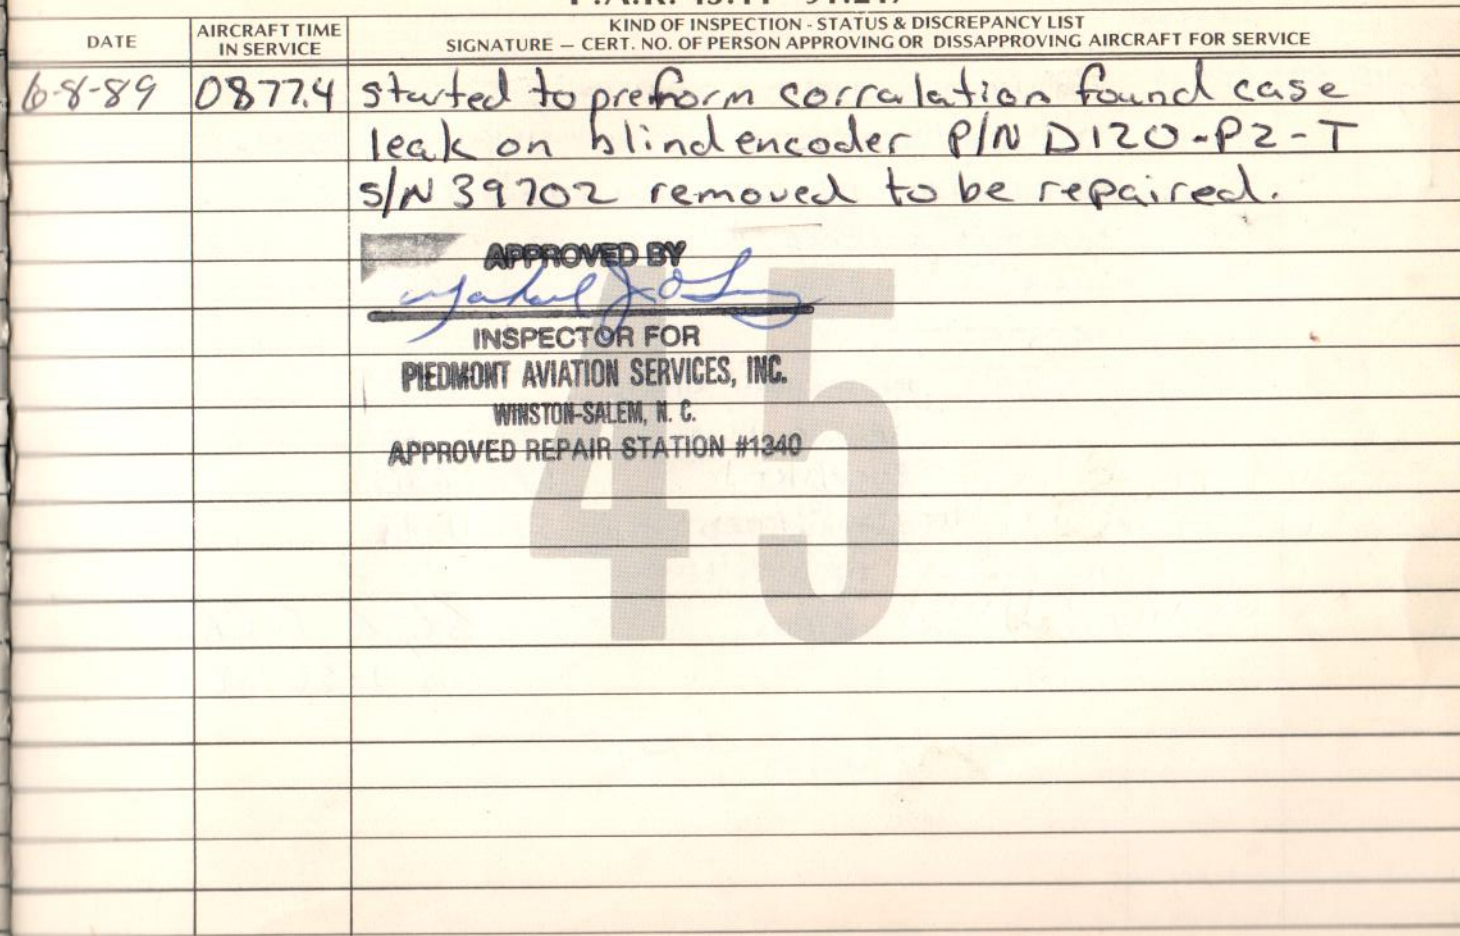 DATE
AIRCRAFT TIME
IN SERVICE
KIND OF INSPECTION - STATUS & DISCREPANCY LIST
SIGNATURE — CERT. NO. OF PERSON APPROVING OR DISSAPPROVING AIRCRAFT FOR SERVICE
6-8-89 0877.4 started to preform corralation found case
leak on blind encoder P/N D120-P2-T
S/N 39702 removed to be repaired.
APPROVED BY
INSPECTOR FOR
PIEDMONT AVIATION SERVICES, INC.
WINSTON-SALEM, N. C.
APPROVED REPAIR STATION #1340
45